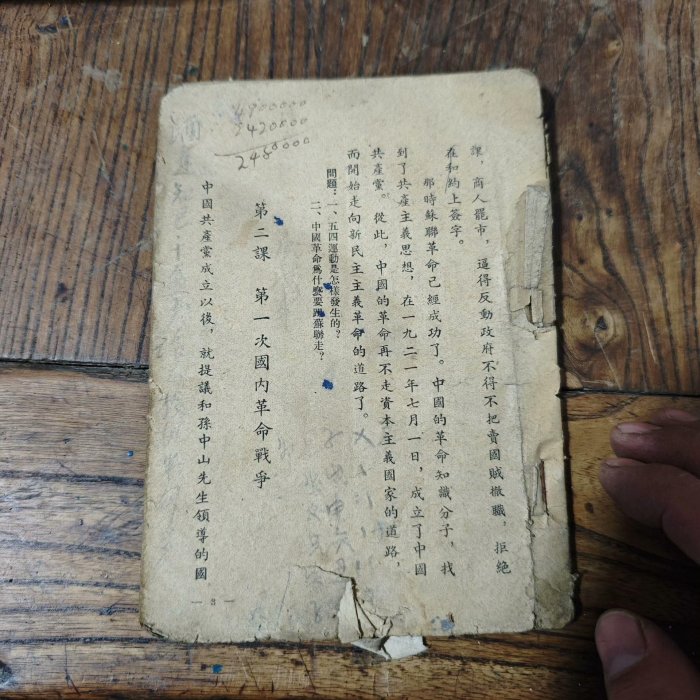 課，商人罷市，逼得反動政府不得不把賣國賊撤職，拒絕
在和約上簽字。
那時蘇聯革命已經成功了。中國的革命知識分子，找
到了共產主義思想，在一九二一年七月一日，成立了中國
共產黨。從此，中國的革命再不走資本主義國家的道路，
而開始走向新民主主義革命的道路了。
問題：一、五四運動是怎樣發生的？
二、中國革命爲什麼要跟蘇聯走？
第二課　第一次國內革命戰爭
中國共產黨成立以後，就提議和孫中山先生領導的國
— 3 —
4900000
2420000
2480000